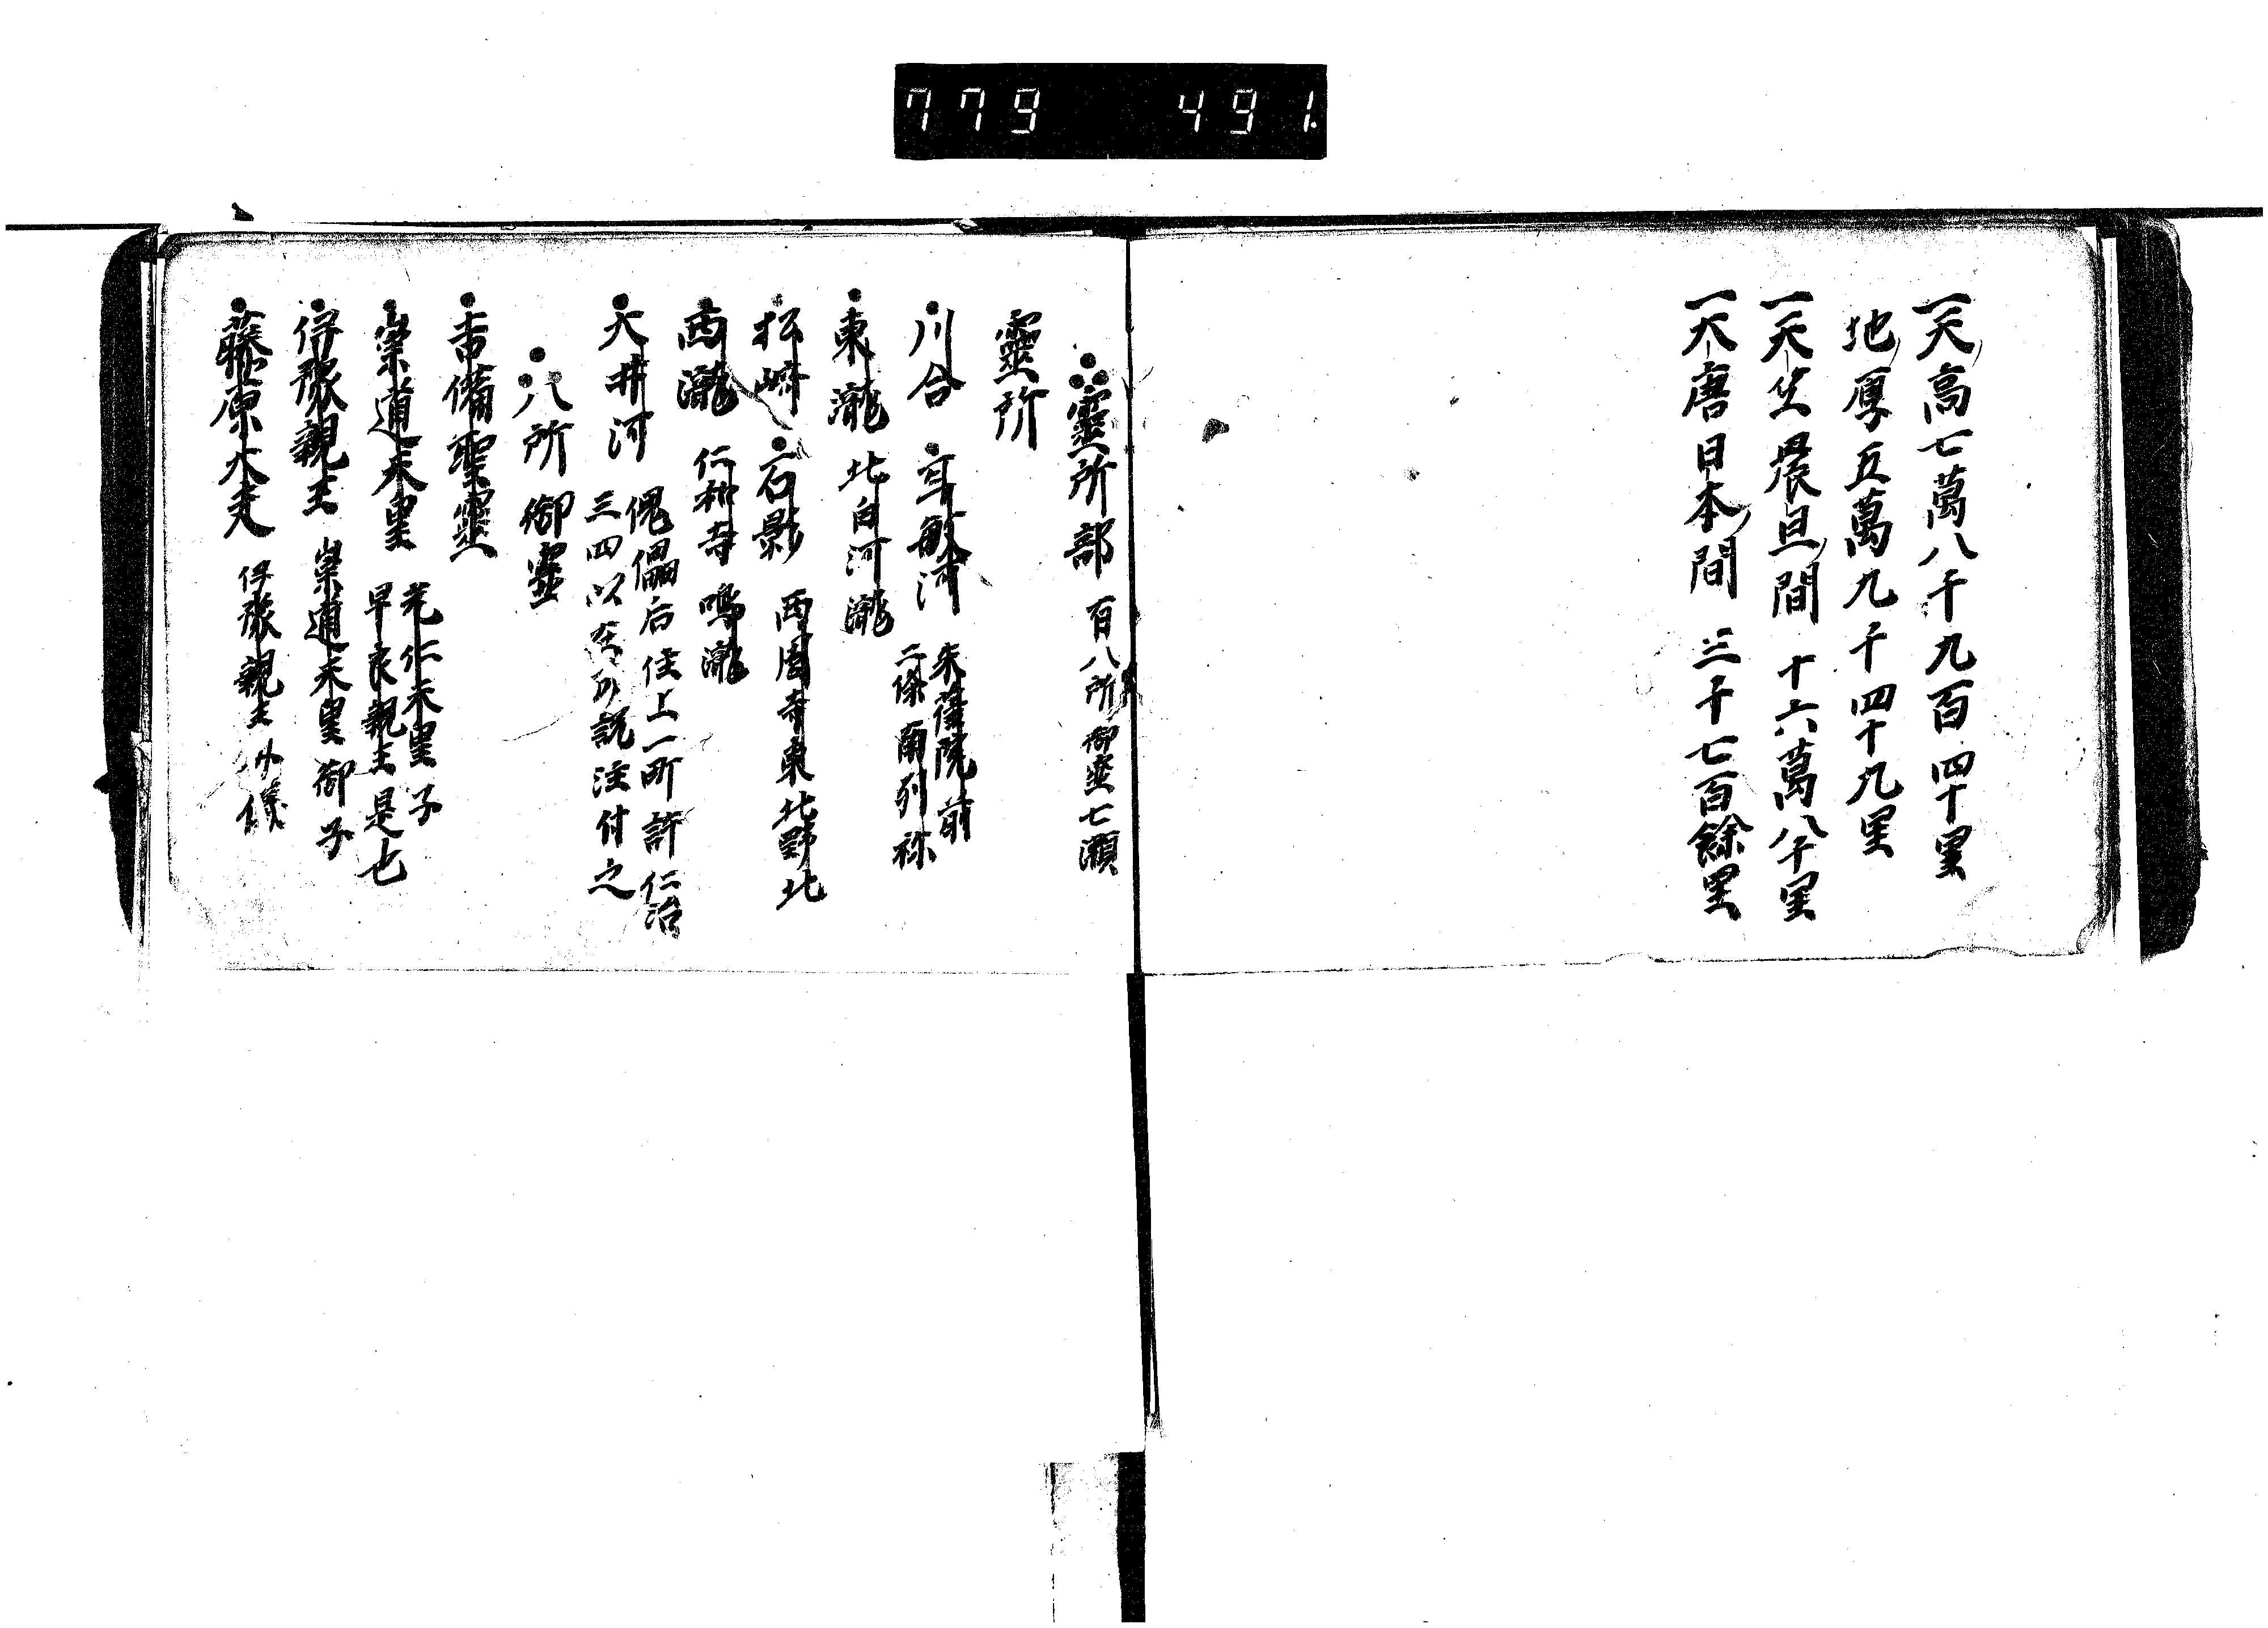 779 491
一天高七萬八千九百四十里
地厚五萬九千四十九里
一天竺晨旦間 十六萬八千里
一大唐日本間 三千七百餘里
靈所部 百八所 御霊 七瀬
靈所
川合 耳敏河 朱雀院前
二條南列祢
東瀧 北白河瀧
松崎 石影 西園寺東北野北
西瀧 仁和寺鳴瀧
大井河 傀儡后住上一町許 仁治
三四以 説注付之
八所御霊
吉備聖靈
崇道天皇 光仁天皇子
早良親王是也
伊豫親王 崇道天皇御子
藤原大夫 伊豫親王